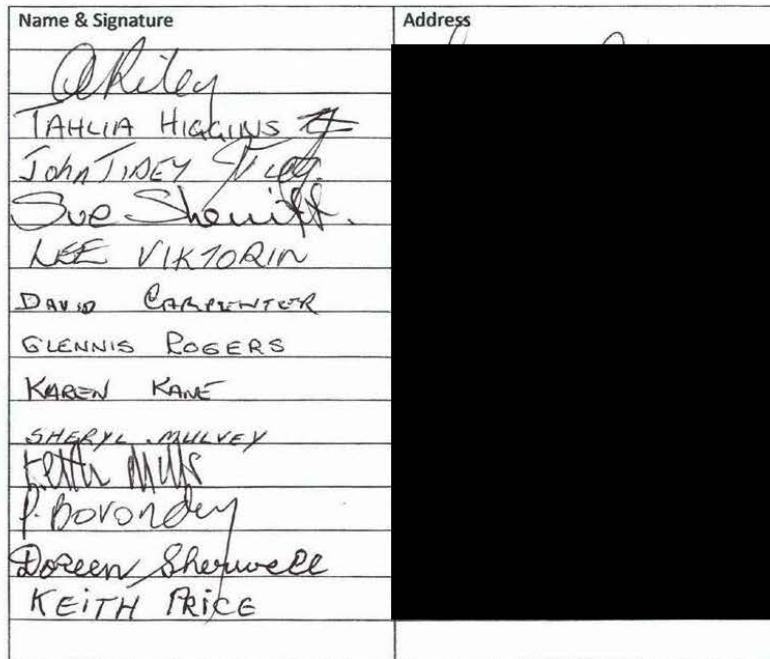 Name & Signature Address
Riley
TAHLIA HIGGINS
John TIDEY
Sue Sherriff.
LEE VIKTORIN
DAVID CARPENTER
GLENNIS ROGERS
KAREN KANE
SHERYL MULVEY
Keith Mills
P. Bovondey
Doreen Sherwell
KEITH PRICE